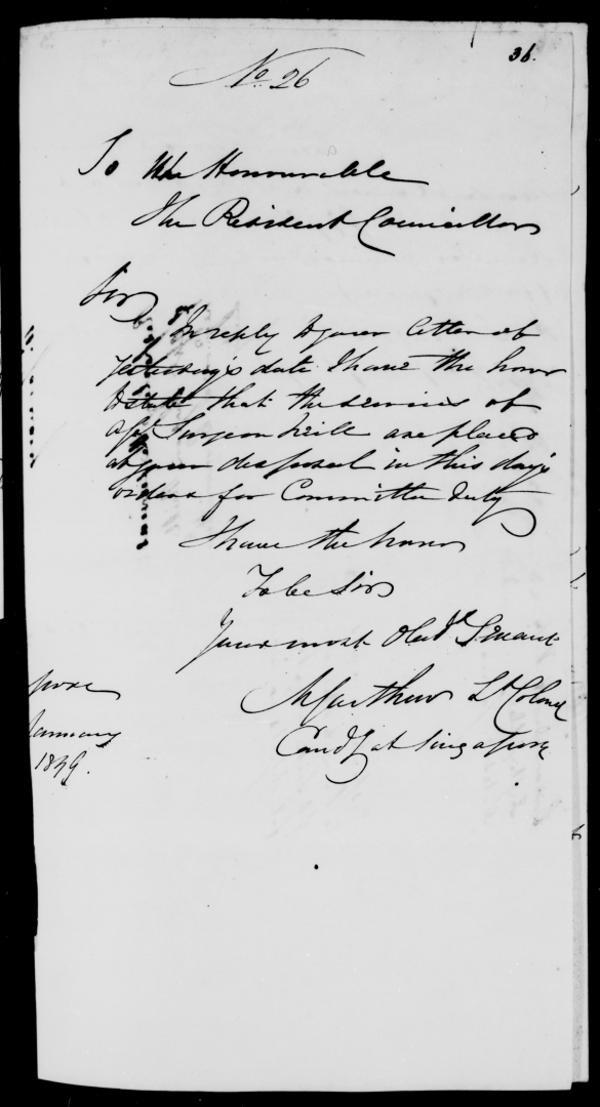 36.
No. 26
To the Honourable
The Resident Councillor
Sir
In reply to your letter of
yesterday's date I have the honor
to state that the services of
Asst Surgeon are placed
at your disposal in this day's
orders for Committee duty
I have the honor
To be Sir
Your most Obedt Servant
Lt Colonel
Comdg at Singapore
pore
January
1849.